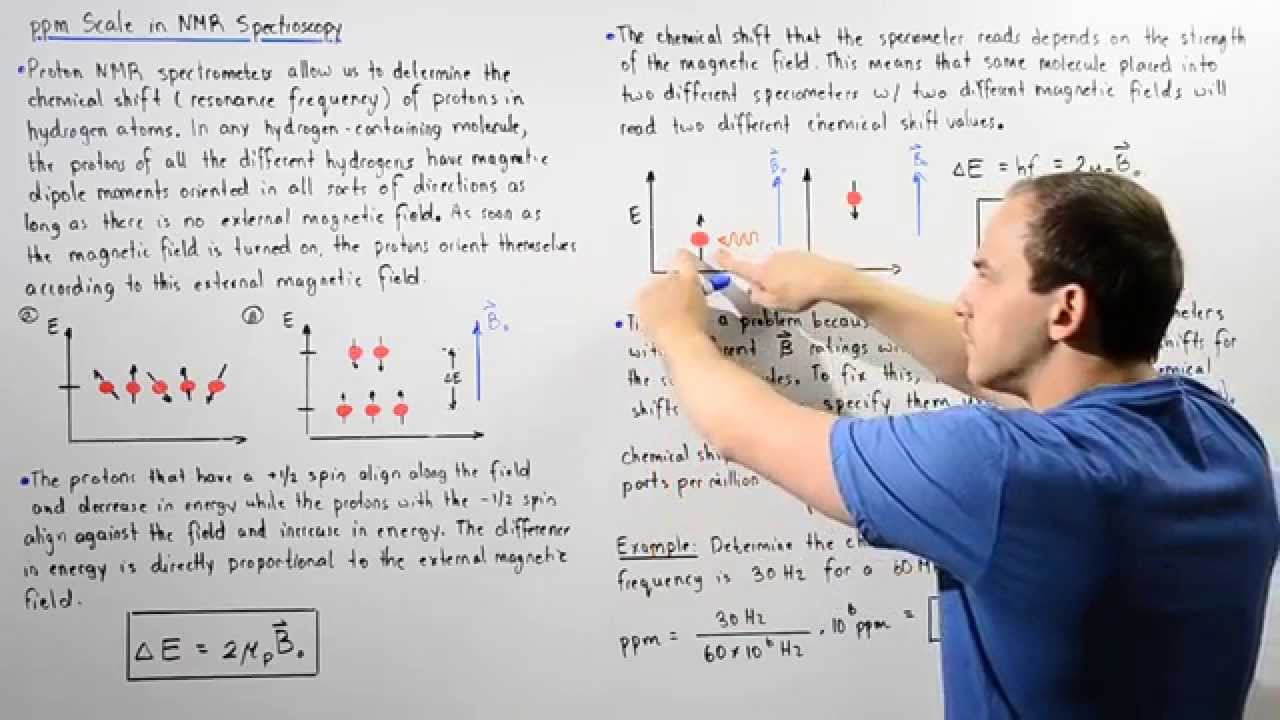 ppm Scale in NMR Spectroscopy
• Proton NMR spectrometers allow us to determine the
chemical shift (resonance frequency) of protons in
hydrogen atoms. In any hydrogen-containing molecule,
the protons of all the different hydrogens have magnetic
dipole moments oriented in all sorts of directions as
long as there is no external magnetic field. As soon as
the magnetic field is turned on, the protons orient themselves
according to this external magnetic field.
E
E
B₀
ΔE
• The protons that have a +1/2 spin align along the field
and decrease in energy while the protons with the -1/2 spin
align against the field and increase in energy. The difference
in energy is directly proportional to the external magnetic
field.
ΔE = 2μpB₀
• The chemical shift that the speciometer reads depends on the strength
of the magnetic field. This means that same molecule placed into
two different speciometers w/ two different magnetic fields will
read two different chemical shift values.
E
B₀
B₀
ΔE = hf = 2μ B₀
• a problem
B ratings
the To fix this,
shifts specify them
chemical
parts per million
Example: Determine the
frequency is 30 Hz for a 60
ppm = 30 Hz / 60 × 10⁶ Hz · 10⁶ ppm =